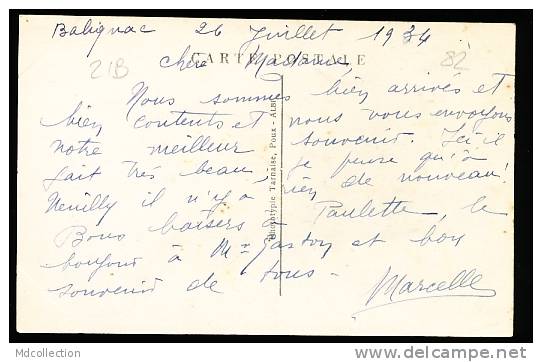 Balignac 26 Juillet 1934
CARTE POSTALE
21B
82
Chère Madame,
Nous sommes bien arrivés et
bien contents et nous vous envoyons
notre meilleur souvenir. Ici il
fait très beau, je pense qu'à
Neuilly il n'y a rien de nouveau!
Bons baisers à Paulette, le
bonjour à Mr Gaston et bon
souvenir de tous -
Marcelle
Phototypie Tarnaise, Poux - ALBI
Mdcollection
delcampe.net